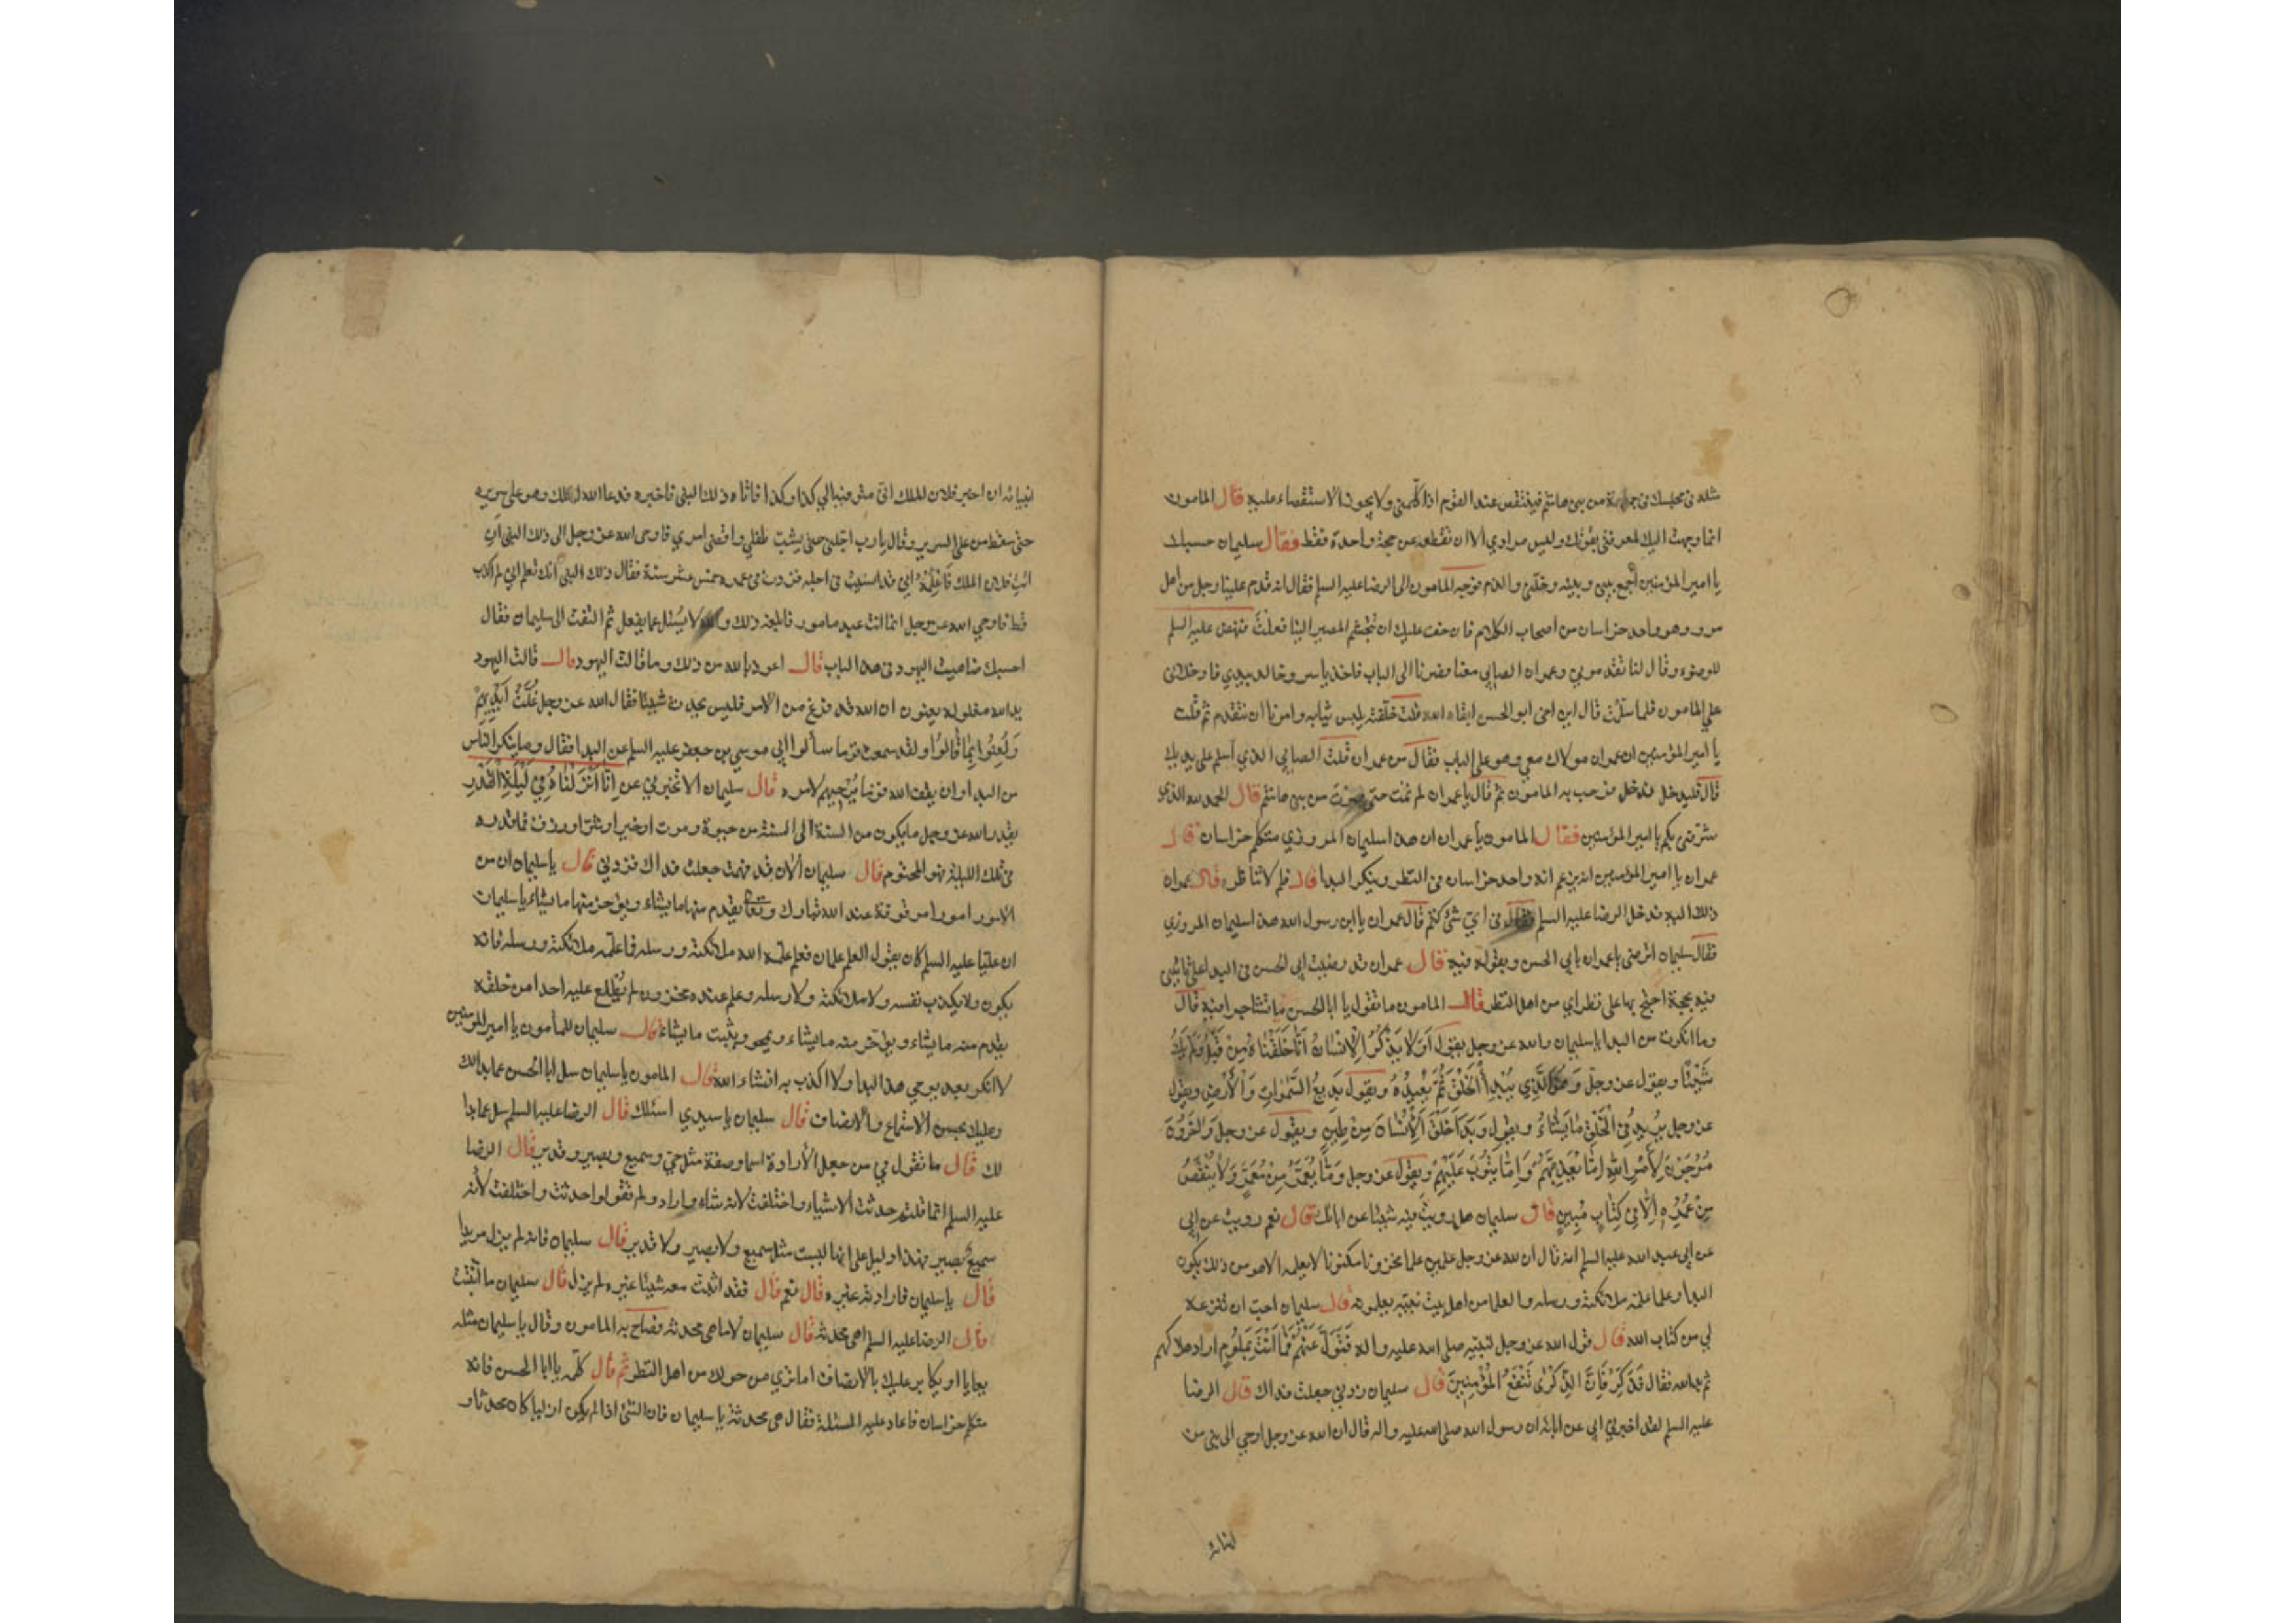 مثله في مجلسك في جماعة من بني هاشم فينتقص عند القوم اذا كلمني ولا يجوز الاستقصاء عليه قال المامون
انما وجهت اليك لمعرفتي بقوتك وليس مرادي الا ان تقطعه عن حجة واحدة فقط فقال سليمان حسبك
يا امير المؤمنين اجمع بيني وبينه وخلني والذم فوجه المامون الى الرضا عليه السلم فقال انه قدم علينا رجل من اهل
مرو وهو واحد خراسان من اصحاب الكلام فان خف عليك ان تتجشم المصير الينا فعلت فنهض عليه السلم
للوضوء وقال لنا تقدموني وعمران الصابي معنا فصرنا الى الباب فاخذ ياسر وخالد بيدي فادخلاني
على المامون فلما سلمت قال اين اخي ابو الحسن ابقاه الله قلت خلفته يلبس ثيابه وامرنا ان نتقدم ثم قلت
يا امير المؤمنين ان عمران مولاك معي وهو على الباب فقال من عمران قلت الصابي الذي اسلم على يديك
قال فليدخل فدخل فرحب به المامون ثم قال يا عمران لم تمت حتى صرت من بني هاشم قال الحمد لله الذي
شرفني بكم يا امير المؤمنين فقال المامون يا عمران ان هذا سليمان المروزي متكلم خراسان قال
عمران يا امير المؤمنين انه يزعم انه واحد خراسان في النظر وينكر البدا قال فلم لا تناظره قال عمران
ذلك اليه فدخل الرضا عليه السلم فقال في اي شئ كنتم قال عمران يا ابن رسول الله هذا سليمان المروزي
فقال سليمان اترضى يا عمران بابي الحسن وبقوله فيه قال عمران قد رضيت ابي الحسن في البدا على ان ياتيني
فيه بحجة احتج بها على نظراي من اهل النظر قال المامون ما تقول يا ابا الحسن ما تشاجرا فيه قال
وما انكرت من البدا يا سليمان والله عز وجل يقول اَوَلا يَذْكُرُ الْاِنْسانُ اَنّا خَلَقْناهُ مِنْ قَبْلُ وَلَمْ يَكُ
شَيْئًا ويقول عز وجل وَهُوَ الَّذِي يَبْدَأُ الْخَلْقَ ثُمَّ يُعِيدُهُ ويقول بَدِيعُ السَّمواتِ وَالْاَرْضِ ويقول
عز وجل يَزِيدُ فِي الْخَلْقِ ما يَشاءُ ويقول وَبَدَأَ خَلْقَ الْاِنْسانِ مِنْ طِينٍ ويقول عز وجل وَآخَرُونَ
مُرْجَوْنَ لِاَمْرِ اللهِ اِمّا يُعَذِّبُهُمْ وَاِمّا يَتُوبُ عَلَيْهِمْ ويقول عز وجل وَما يُعَمَّرُ مِنْ مُعَمَّرٍ وَلا يُنْقَصُ
مِنْ عُمُرِهِ اِلّا فِي كِتابٍ مُبِينٍ قال سليمان هل رويت فيه شيئا عن ابائك قال نعم رويت عن ابي
عن ابي عبد الله عليه السلم انه قال ان لله عز وجل علمين علما مخزونا مكنونا لا يعلمه الا هو من ذلك يكون
البدا وعلما علمه ملائكته ورسله والعلما من اهل بيت نبيه يعلمونه قال سليمان احب ان تنزعه
لي من كتاب الله قال قول الله عز وجل لنبيه صلى الله عليه واله فَتَوَلَّ عَنْهُمْ فَما اَنْتَ بِمَلُومٍ اراد هلاكهم
ثم بدا لله فقال فَذَكِّرْ فَاِنَّ الذِّكْرى تَنْفَعُ الْمُؤْمِنِينَ قال سليمان زدني جعلت فداك قال الرضا
عليه السلم لقد اخبرني ابي عن ابائه ان رسول الله صلى الله عليه واله قال ان الله عز وجل اوحي الى نبي من
انبيائه
انبيائه ان اخبر فلان الملك اني متوفيه الى كذا وكذا فاتاه ذلك النبي فاخبره فدعا الله الملك وهو على سريره
حتى سقط من على السرير وقال يا رب اجلني حتى يشب طفلي واقضي امري فاوحى الله عز وجل الى ذلك النبي ان
ائت فلان الملك فاعلمه اني قد انسيت في اجله وزدت في عمره خمس عشر سنة فقال ذلك النبي انك تعلم اني لم اكذب
قط فاوحي الله عز وجل انما انت عبد مامور فابلغه ذلك والله لا يسئل عما يفعل ثم التفت الى سليمان فقال
احسبك ضاهيت اليهود في هذا الباب قال اعوذ بالله من ذلك وما قالت اليهود قال قالت اليهود
يد الله مغلولة يعنون ان الله قد فرغ من الامر فليس يحدث شيئا فقال الله عز وجل غُلَّتْ اَيْدِيهِمْ
وَلُعِنُوا بِما قالُوا ولقد سمعت قوما سألوا ابي موسى بن جعفر عليه السلم عن البدا فقال وما ينكر الناس
من البدا وان يقف الله قوما يرجيهم لامره قال سليمان الا تخبرني عن اِنّا اَنْزَلْناهُ فِي لَيْلَةِ الْقَدْرِ
يقدر الله عز وجل ما يكون من السنة الى السنة من حيوة وموت او خير او شر او رزق فما قدره
في تلك الليلة فهو المحتوم قال سليمان الان قد فهمت جعلت فداك فزدني قال يا سليمان ان من
الامور امورا موقوفة عند الله تبارك وتعالى يقدم منها ما يشاء ويؤخر منها ما يشاء يا سليمان
ان عليا عليه السلم كان يقول العلم علمان فعلم علمه الله ملائكته ورسله فما علمه ملائكته ورسله فانه
يكون ولا يكذب نفسه ولا ملائكته ولا رسله وعلم عنده مخزون لم يطلع عليه احدا من خلقه
يقدم منه ما يشاء ويؤخر منه ما يشاء ويمحو ويثبت ما يشاء قال سليمان للمأمون يا امير المؤمنين
لا انكر بعد يومي هذا البدا ولا اكذب به انشاء الله قال المامون يا سليمان سل ابا الحسن عما بدالك
وعليك بحسن الاستماع والانصاف قال سليمان يا سيدي اسئلك قال الرضا عليه السلم سل عما بدا
لك قال ما تقول في من جعل الأرادة اسما وصفة مثل حي وسميع وبصير وقدير قال الرضا
عليه السلم انما قلتم حدثت الاشياء واختلفت لانه شاء واراد ولم تقولوا حدثت واختلفت لأنه
سميع بصير فهذا دليل على انها ليست مثل سميع ولا بصير ولا قدير قال سليمان فانه لم يزل مريدا
قال يا سليمان فارادته غيره قال نعم قال فقد اثبت معه شيئا غيره لم يزل قال سليمان ما اثبت
قال الرضا عليه السلم اهي محدثة قال سليمان لا ما هي محدثة فصاح به المامون وقال يا سليمان مثله
يعايا او يكابر عليك بالانصاف اما ترى من حولك من اهل النظر ثم قال كلمه يا ابا الحسن فانه
متكلم خراسان فاعاد عليه المسئلة فقال هي محدثة يا سليمان فان الشئ اذا لم يكن ازليا كان محدثا و